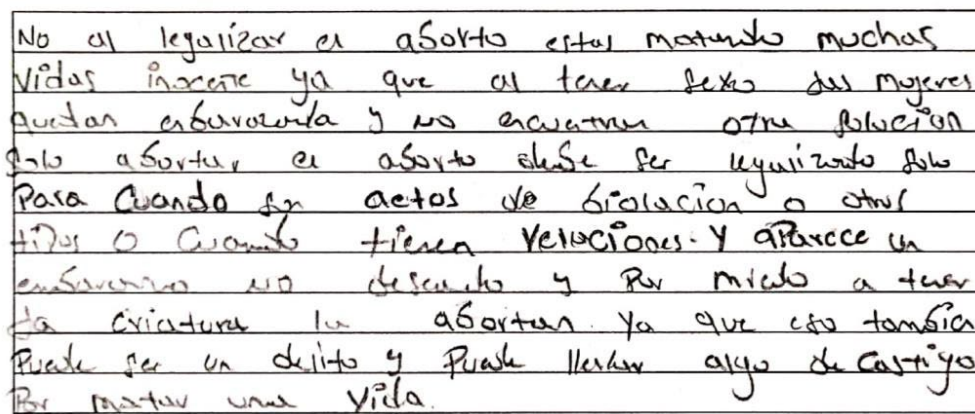 No al legalizar el aborto estas matando muchas
vidas inocente ya que al tener sexo las mujeres
quedan enbarazada y no encuentran otra solucion
solo abortar el aborto debe ser legalizado solo
Para Cuando son actos de biolacion o otros
tipos O Cuando tienen relaciones. Y aparece un
embarazo no deseado y Por miedo a tener
la criatura la abortan. Ya que eso tambien
Puede ser un delito y Puede llevar algo de Castigo
Por matar una vida.